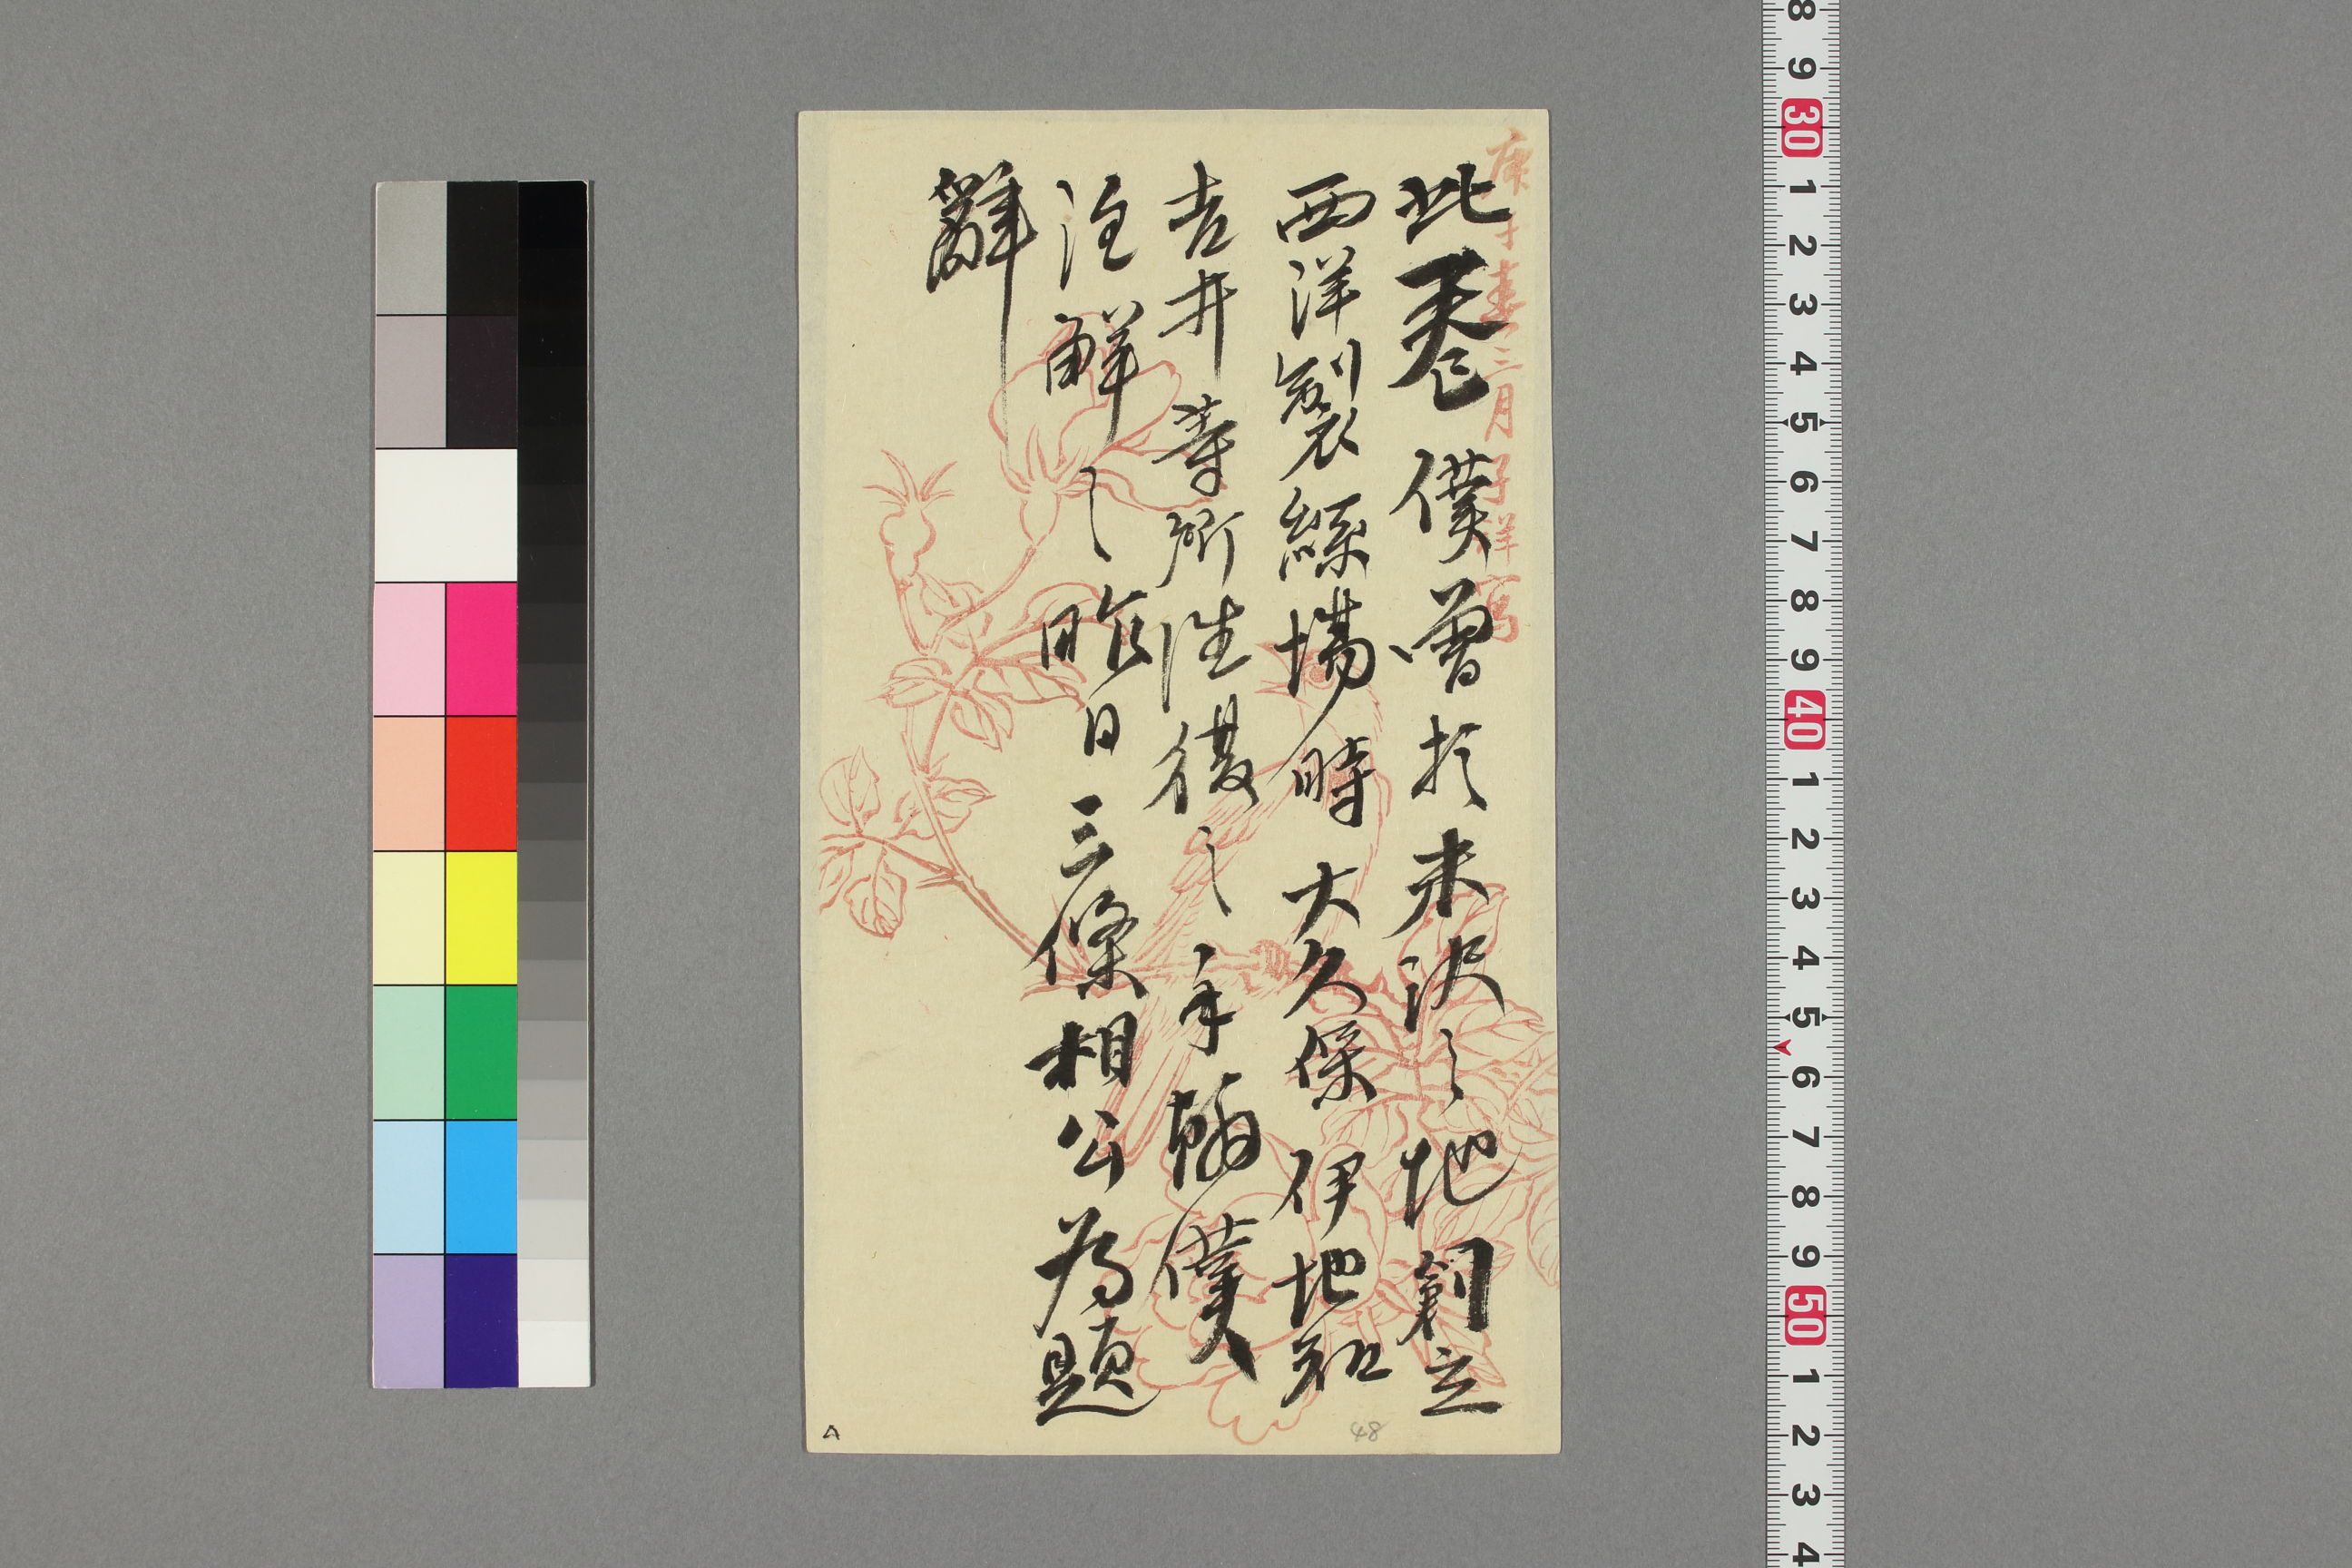 庚子春三月子祥写
此巻僕曽於未決之地創立
西洋製絲場時大久保伊地知
吉井等所往復之手翰僕
注解之昨日三條相公為題
辭
A
48
8 9 30 1 2 3 4 5 6 7 8 9 40 1 2 3 4 5 6 7 8 9 50 1 2 3 4